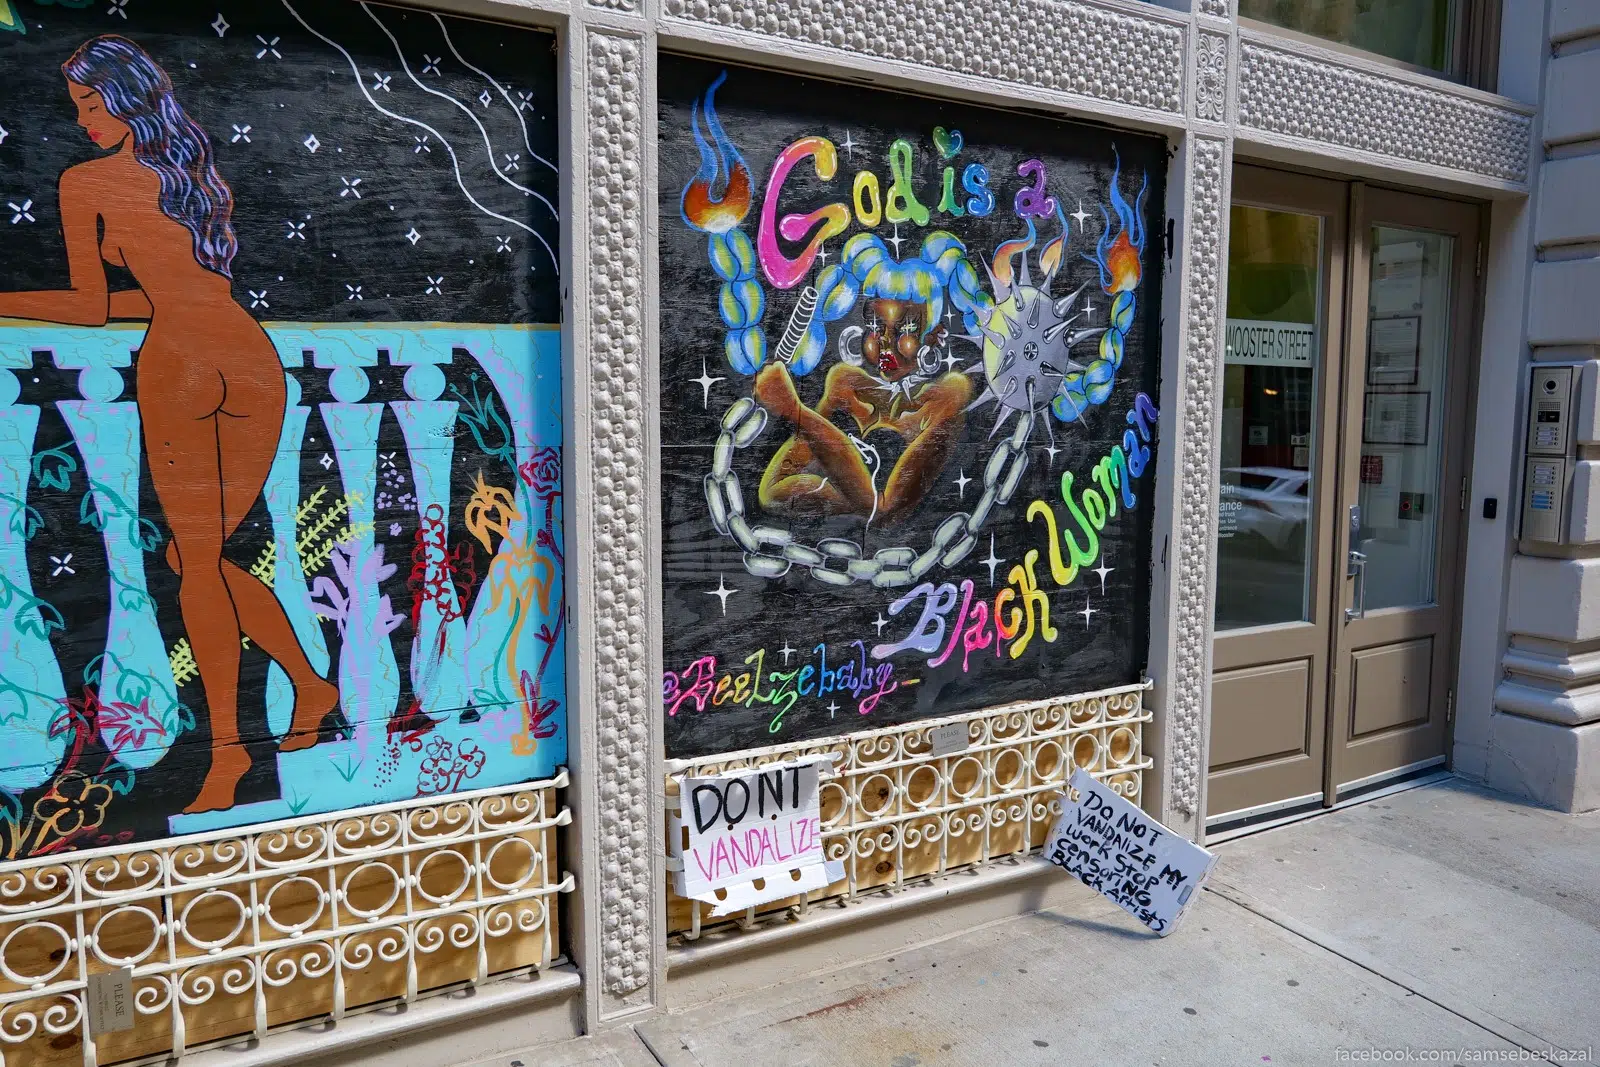 God is a
Black Woman
@Beelzebaby_
DONT
VANDALIZE
DO NOT
VANDALIZE MY
WORK STOP
CENSORING
BLACK ARTISTS
WOOSTER STREET
PLEASE
PLEASE
facebook.com/samsebeskazal